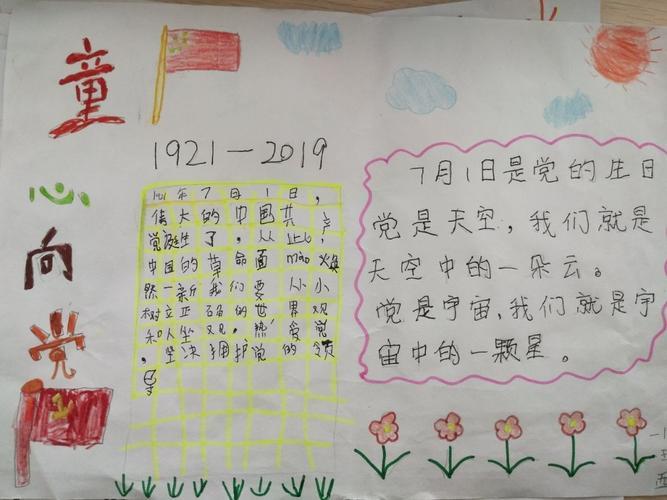 童
心
向
党
1921-2019
1921年7月1日，
伟大的中国共产
党诞生了，从此，
中国的革命面mào焕
然一新我们要从小
树立正确的世界观
和人生观。热爱党
。坚决拥护党的领
导
7月1日是党的生日
党是天空，我们就是
天空中的一朵云。
党是宇宙，我们就是宇
宙中的一颗星。